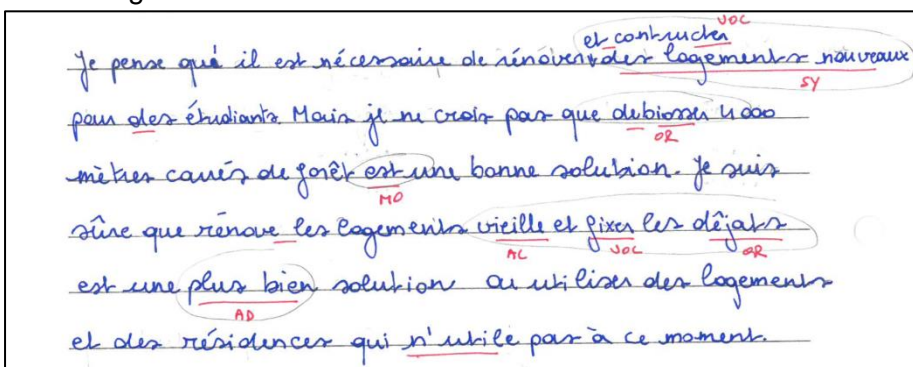 VOC
et contructer
Je pense que il est nécessaire de rénover des logements nouveaux
SY
pour des étudiants. Mais je ne crois pas que debiosser 4000
OR
mètres carrés de forêt est une bonne solution. Je suis
MO
sûre que rénove les logements vieille et fixer les dêjats
AC VOC OR
est une plus bien solution. Ou utiliser des logements
AD
et des résidences qui n'utile pas à ce moment.